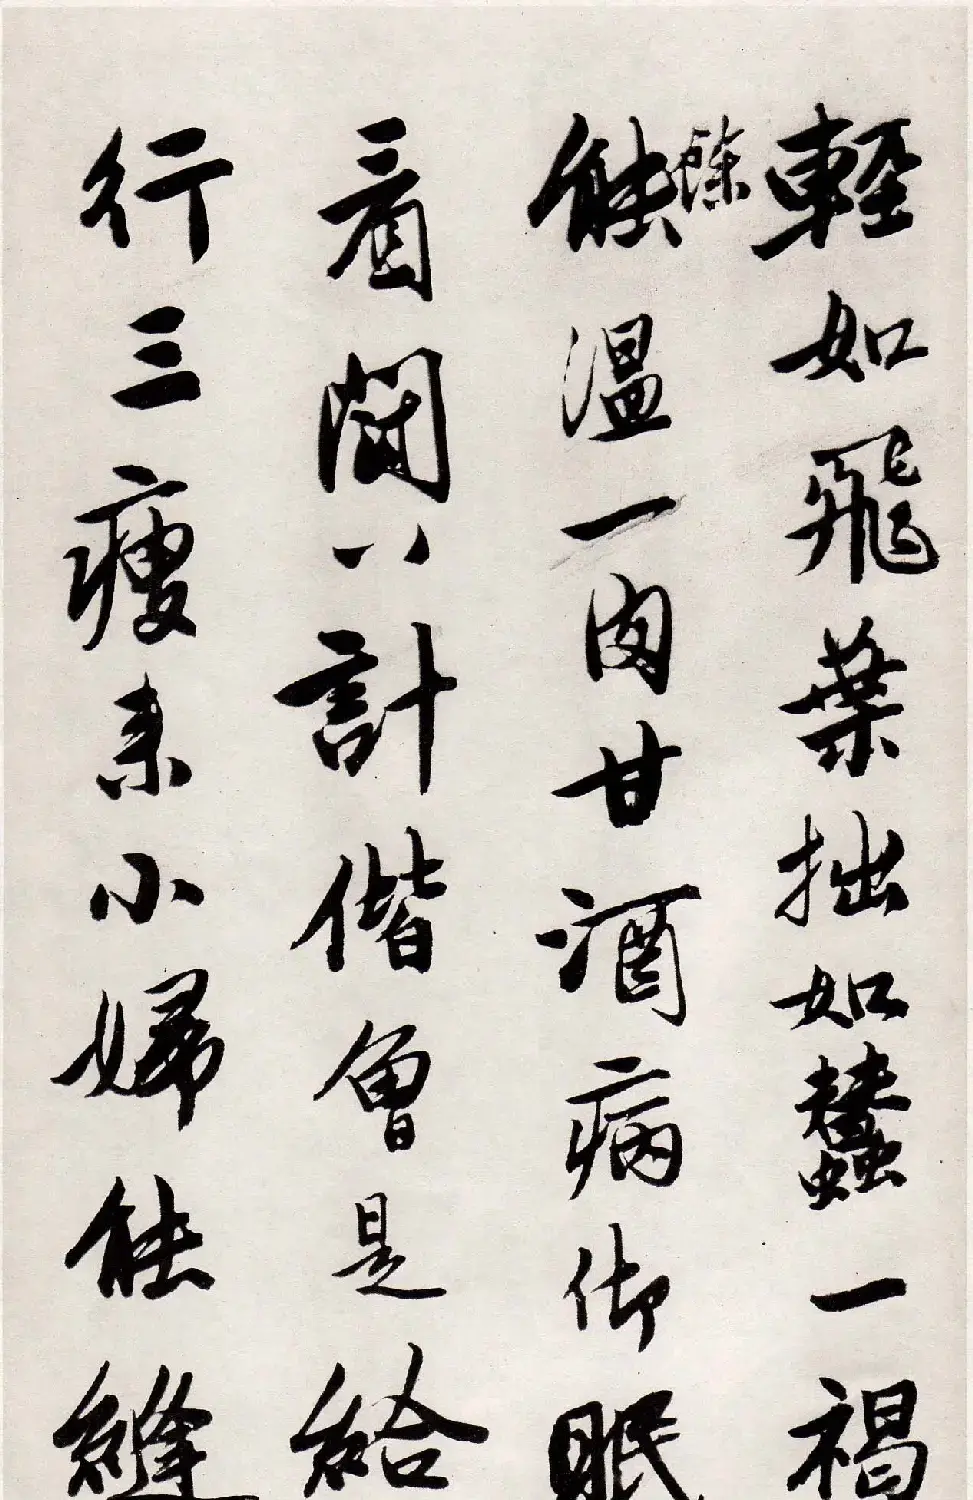 輕如飛葉拙如蠢一褐
餘
能溫一肉甘酒病仰眠
看閣八計偕曾是給
行三瘦來小婦能縫